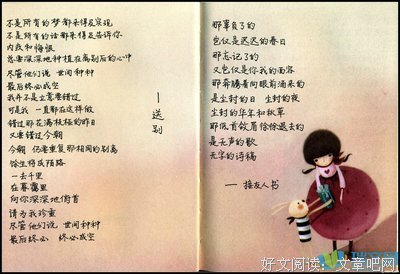 不是所有的梦都来得及实现
不是所有的话都来得及告诉你
内疚和悔恨
总要深深地种植在离别后的心中
尽管他们说 世间种种
最后终必成空
我并不是立意要错过
可是我 一直都在这样做
错过那花满枝桠的昨日
又要错过今朝
今朝 仍要重复那相同的别离
馀生将成陌路
一去千里
在暮霭里
向你深深地俯首
请为我珍重
尽管他们说 世间种种
最后终必 终必成空
—送别
那辜负了的
岂仅是迟迟的春日
那忘记了的
又岂仅是你我的面容
那奔腾着向眼前涌来的
是尘封的日 尘封的夜
尘封的华年和秋草
那低首敛眉徐徐退去的
是无声的歌
无字的诗稿
—接友人书
好文阅读 文章吧网